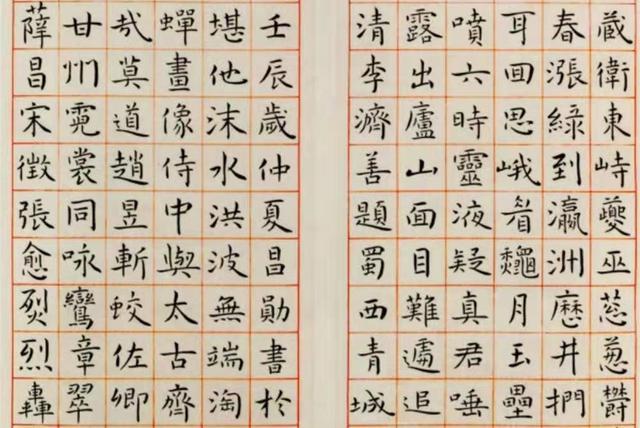 藏衛東峙夔巫葱欝
春漲綠到瀛洲歷井捫
耳回思峨眉龝月玉壘
噴六時靈液疑真君唾
露出廬山面目難遽追
清李濟善題蜀西青城
壬辰歲仲夏昌勛書於
堪他沫水洪波無端淘
蟬畫像侍中與太古齊
哉莫道趙昱斬蛟佐卿
甘州霓裳同咏鸞章翠
薛昌宋徵張愈烮烈轟